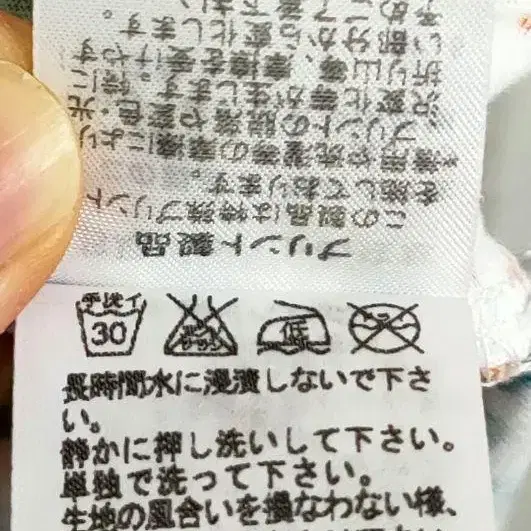 プリント製品
この製品は特殊プリント
を施しております。
着用や洗濯等の摩擦により
プリントの脱落や変色、光
沢変化等が生じます。特に
折り山等、摩擦を受けやす
い部分から変化します。
予めご了承下さい
手洗イ
30
エンソ
サラシ
低
長時間水に浸漬しないで下さ
い。
静かに押し洗いして下さい。
単独で洗って下さい。
生地の風合いを損なわない様、